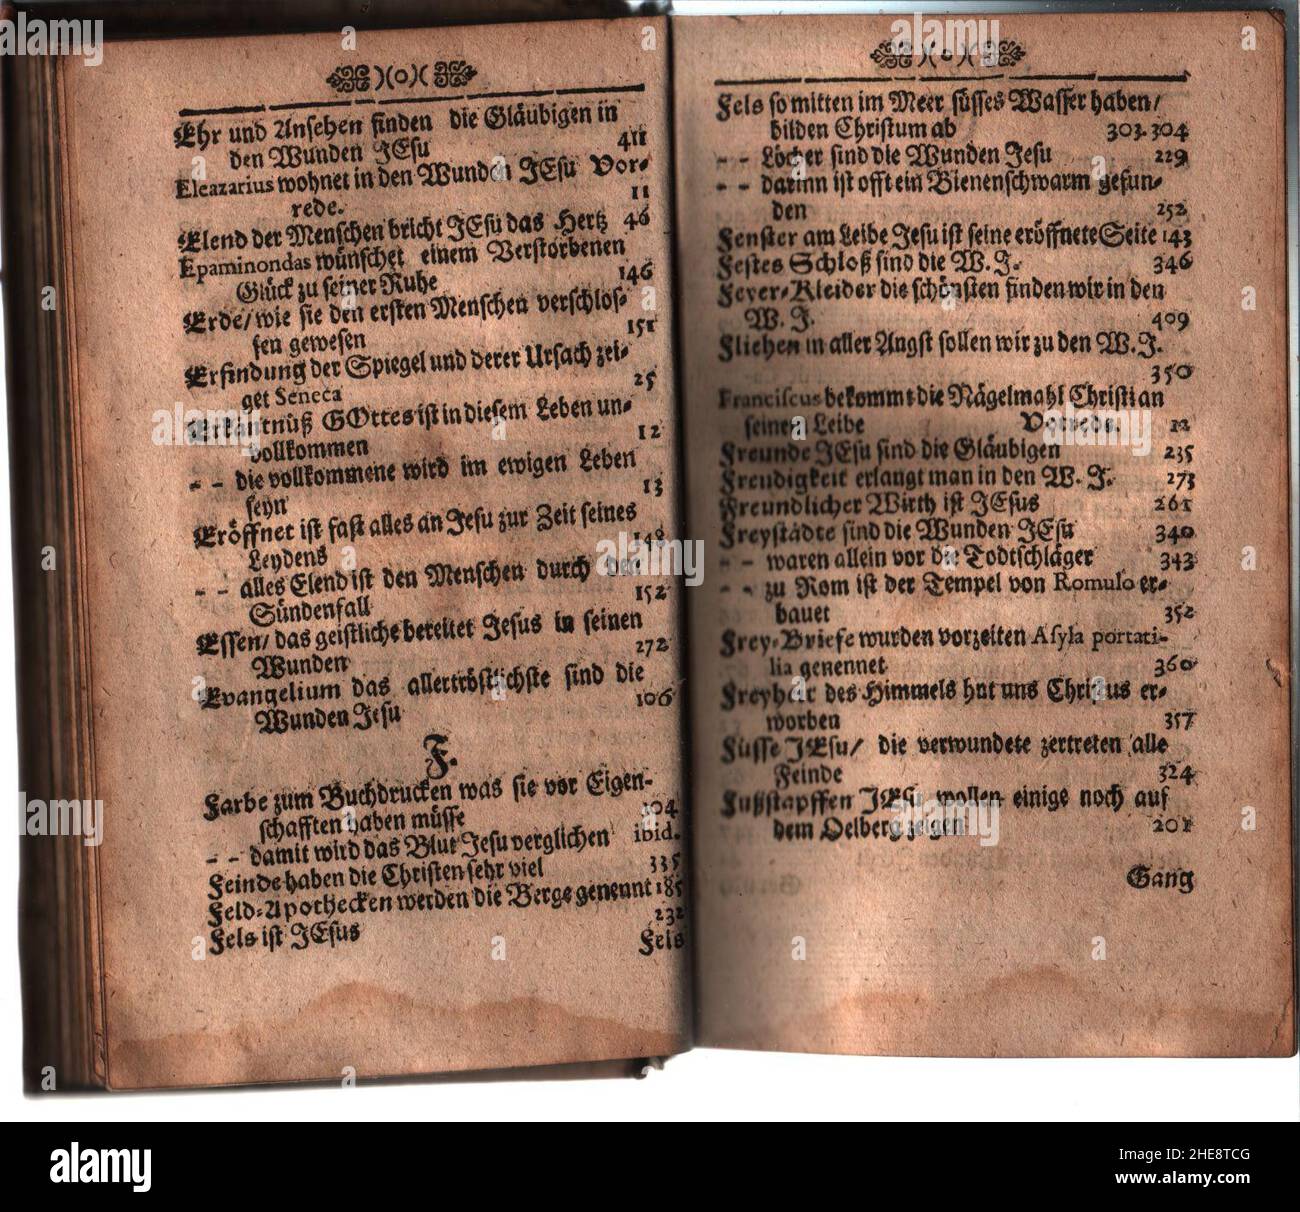 Ehr und Ansehen finden die Gläubigen in
den Wunden JEsu 411
Eleazarius wohnet in den Wunden JEsu Vor-
rede. 11
Elend der Menschen bricht JEsu das Hertz 46
Epaminondas wünschet einem Verstorbenen
Glück zu seiner Ruhe 146
Erde/ wie sie den ersten Menschen verschlos-
sen gewesen 151
Erfindung der Spiegel und derer Ursach zei-
get Seneca 25
Erkäntnüß GOttes ist in diesem Leben un-
vollkommen 12
- - die vollkommene wird im ewigen Leben
seyn 13
Eröffnet ist fast alles an Jesu zur Zeit seines
Leydens 148
- - alles Elend ist den Menschen durch den
Sündenfall 152
Essen/ das geistliche bereitet Jesus in seinen
Wunden 272
Evangelium das allertröstlichste sind die
Wunden Jesu 106
F.
Farbe zum Buchdrucken was sie vor Eigen-
schafften haben müsse 104
- - damit wird das Blut Jesu verglichen ibid.
Feinde haben die Christen sehr viel 335
Feld-Apothecken werden die Berge genennt 185
Fels ist JEsus 232
Fels
Fels so mitten im Meer süsses Wasser haben/
bilden Christum ab 303. 304
- - Löcher sind die Wunden Jesu 229
- - darinn ist offt ein Bienenschwarm gefun-
den 252
Fenster am Leibe Jesu ist seine eröffnete Seite 143
Festes Schloß sind die W. J. 346
Feyer-Kleider die schönsten finden wir in den
W. J. 409
Fliehen in aller Angst sollen wir zu den W. J.
350
Franciscus bekommt die Nägelmahl Christi an
seinem Leibe Vorrede. 12
Freunde JEsu sind die Gläubigen 235
Freudigkeit erlangt man in den W. J. 273
Freundlicher Wirth ist JEsus 261
Freystädte sind die Wunden JEsu 340
- - waren allein vor die Todtschläger 343
- - zu Rom ist der Tempel von Romulo er-
bauet 352
Frey-Briefe wurden vorzeiten Asyla portati-
lia genennet 360
Freyheit des Himmels hat uns Christus er-
worben 357
Füsse JEsu/ die verwundete zertreten alle
Feinde 324
Fußstapffen JEsu wollen einige noch auf
dem Oelberg zeigen 201
Gang
alamy
Image ID: 2HE8TCG
www.alamy.com